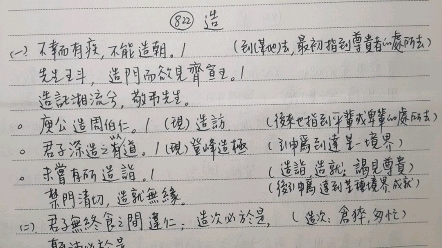 (822) 造
(一) 不幸而有疾,不能造朝。/ (到(某地)去,最初指到尊貴者的處所去)
先生王斗,造門而欲見齊宣王。/
造託湘流兮,敬弔先生。
。庾公造周伯仁。/ (現) 造訪 (後來也指到平輩或卑輩的處所去)
。君子深造之以道。/ (現) 登峰造極 (引申為到達某一境界)
。未嘗有所造詣。/ (造詣,造就,謁見尊貴)
禁門清切,造就無緣。 (後引申為達到某種境界成就)
(二) 君子無終食之間違仁,造次必於是, (造次,倉猝,匆忙)
顛沛必於是